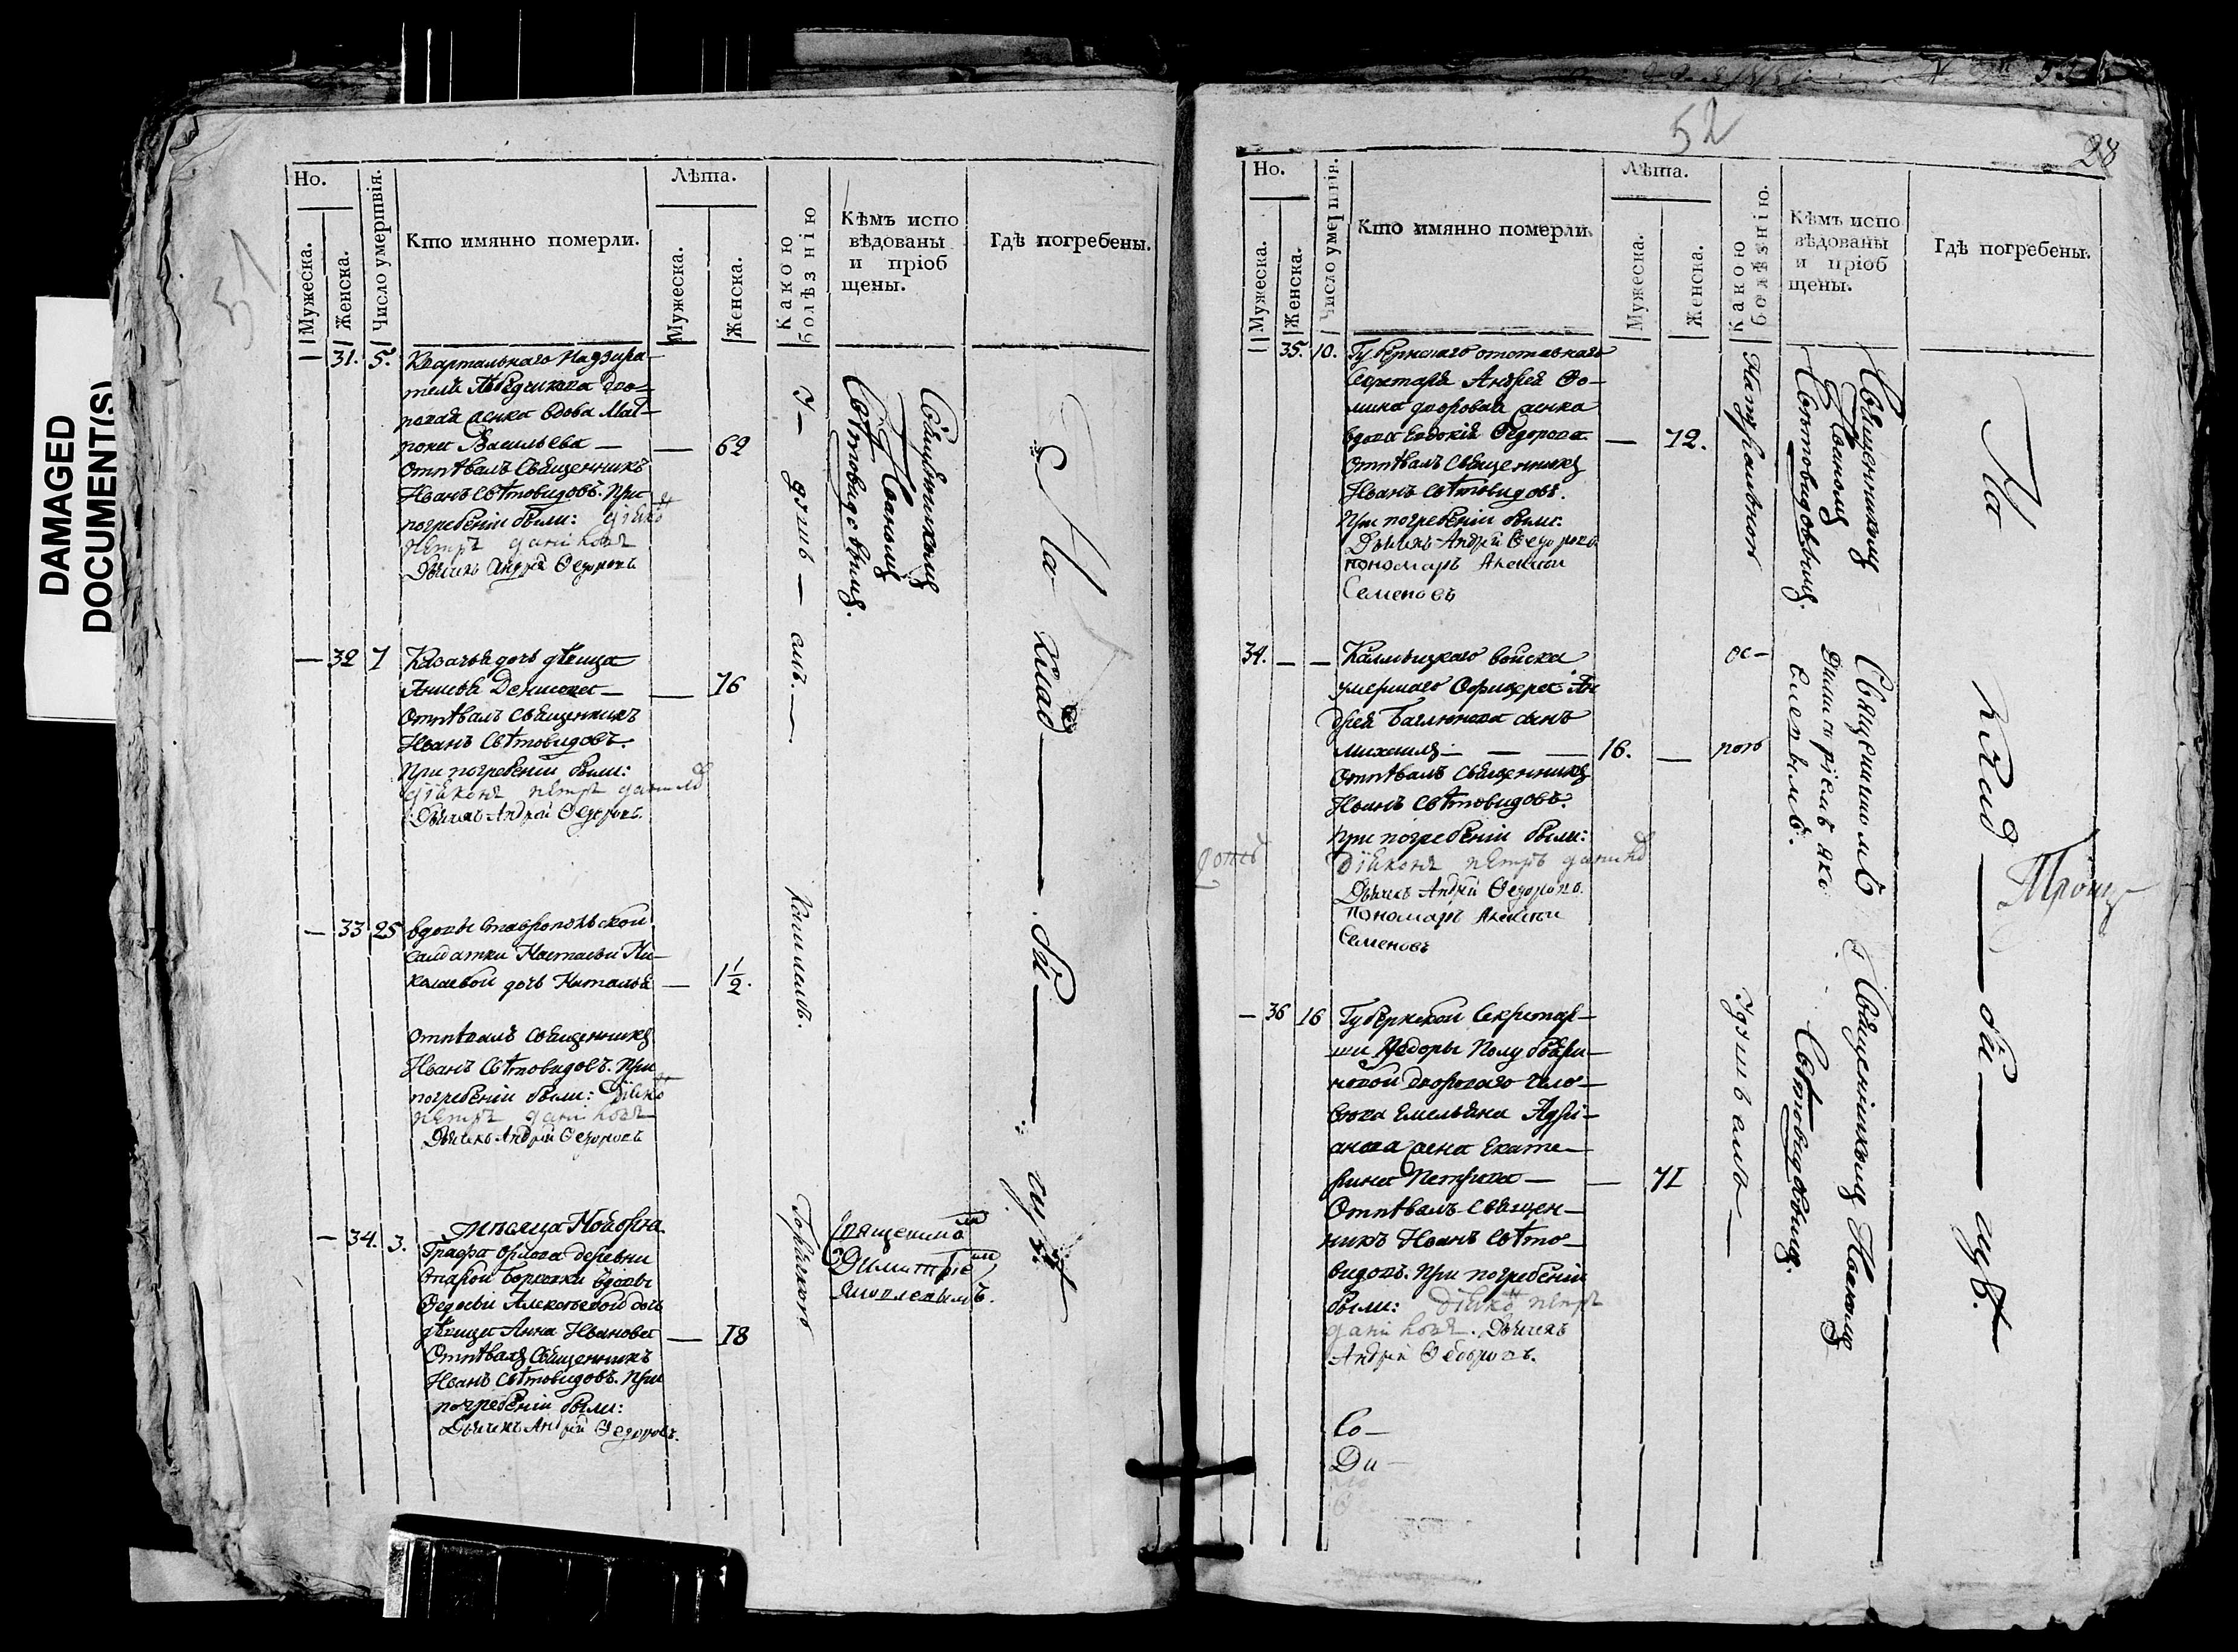 DAMAGED
DOCUMENT(S)
51
Но.
Мужеска.
Женска.
Число умертвія.
Кто имянно померли.
Лѣта.
Мужеска.
Женска.
Какою
болѣзнію
Кѣмъ испо
вѣдованы
и пріоб
щены.
Гдѣ погребены.
— 31. 5. Квартальнаго Надзира—
теля Лебедчикова дво—
ровая женка вдова Мат—
рона Васильева — — 62
Отпѣвалъ Священникъ
Иванъ Свѣтовидовъ. При
погребеніи были: діако
петръ данiловъ
Дьячекъ Андрей Ѳедоровъ
У— душь — емъ. —
Священникомъ
Iоанномъ
Свѣтовидовымъ.
— 32 7 Казачья дочь дѣвица
Денисова — — 76
Отпѣвалъ Священникъ
Иванъ Свѣтовидовъ.
При погребеніи были:
діаконъ петръ данило
Дьячекъ Андрей Ѳедоровъ.
— 33 25 вдовы Ставропольской
Салдатки Настасьи Ни—
колаевой дочь Наталья — 1½.
Кашлемъ.
Отпѣвалъ Священникъ
Иванъ Свѣтовидовъ. При
погребеніи были: Діако
петръ данiловъ
Дьячекъ Андрей Ѳедоровъ
— 34. 3. Графа Орлова деревни
Старой вдовы
Ѳедосьи Алексѣевой дочь
дѣвица Анна Иванова — 18
Отпѣвалъ Священникъ
Иванъ Свѣтовидовъ. При
погребеніи были:
Дьячекъ Андрей Ѳедоровъ.
Горячкою
Священникомъ
Димитріемъ
На клад — би — щѣ
52
28
Но.
Мужеска.
Женска.
Число умертвія.
Кто имянно померли.
Лѣта.
Мужеска.
Женска.
Какою
болѣзнію.
Кѣмъ испо
вѣдованы
и пріоб
щены.
Гдѣ погребены.
— 35. 10. Губернскаго отставнаго
Секретаря Андрея Ѳо—
мина дворовая женка
вдова Евдокія Ѳедорова — 72.
Отпѣвалъ Священникъ
Иванъ Свѣтовидовъ.
При погребеніи были:
Дьячекъ Андрей Ѳедоровъ
пономарь Алексѣй
Семеновъ
Натуральною
Священникомъ
Iоанномъ
Свѣтовидовымъ.
34. — — Калмыцкаго войска
умершаго Офицера Ан
дрея сынъ
Михаилъ — — — 16. —
Отпѣвалъ Священникъ
Иванъ Свѣтовидовъ.
При погребеніи были:
Діаконъ петръ данило
Дьячекъ Андрей Ѳедоровъ.
пономарь Алексѣй
Семеновъ
ос—
пою
Священникомъ
Димитріемъ Яко
влевымъ.
— 36 16 Губернской Секретар—
ши Ѳедоры Полубояри—
новой двороваго чело—
вѣка Емельяна Адри—
анова жена Екате—
рина Петрова — — 71
Отпѣвалъ Священ—
никъ Иванъ Свѣто—
видовъ. При погребеніи
были: Діако петръ
данiловъ. Дьячекъ
Андрей Ѳедоровъ.
Удушьемъ —
Священникомъ Иваномъ
Свѣтовидовымъ.
Со—
Ди—
На клад — би — щѣ.
Троиц